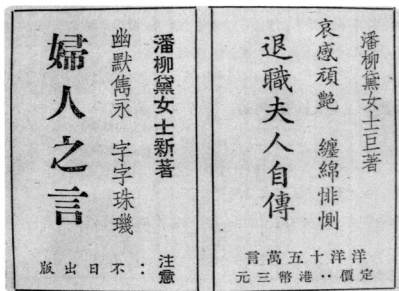 潘柳黛女士巨著
哀感頑艷　纏綿悱惻
退職夫人自傳
洋洋十五萬言
定價：港幣三元
潘柳黛女士新著
幽默雋永　字字珠璣
婦人之言
注意：不日出版